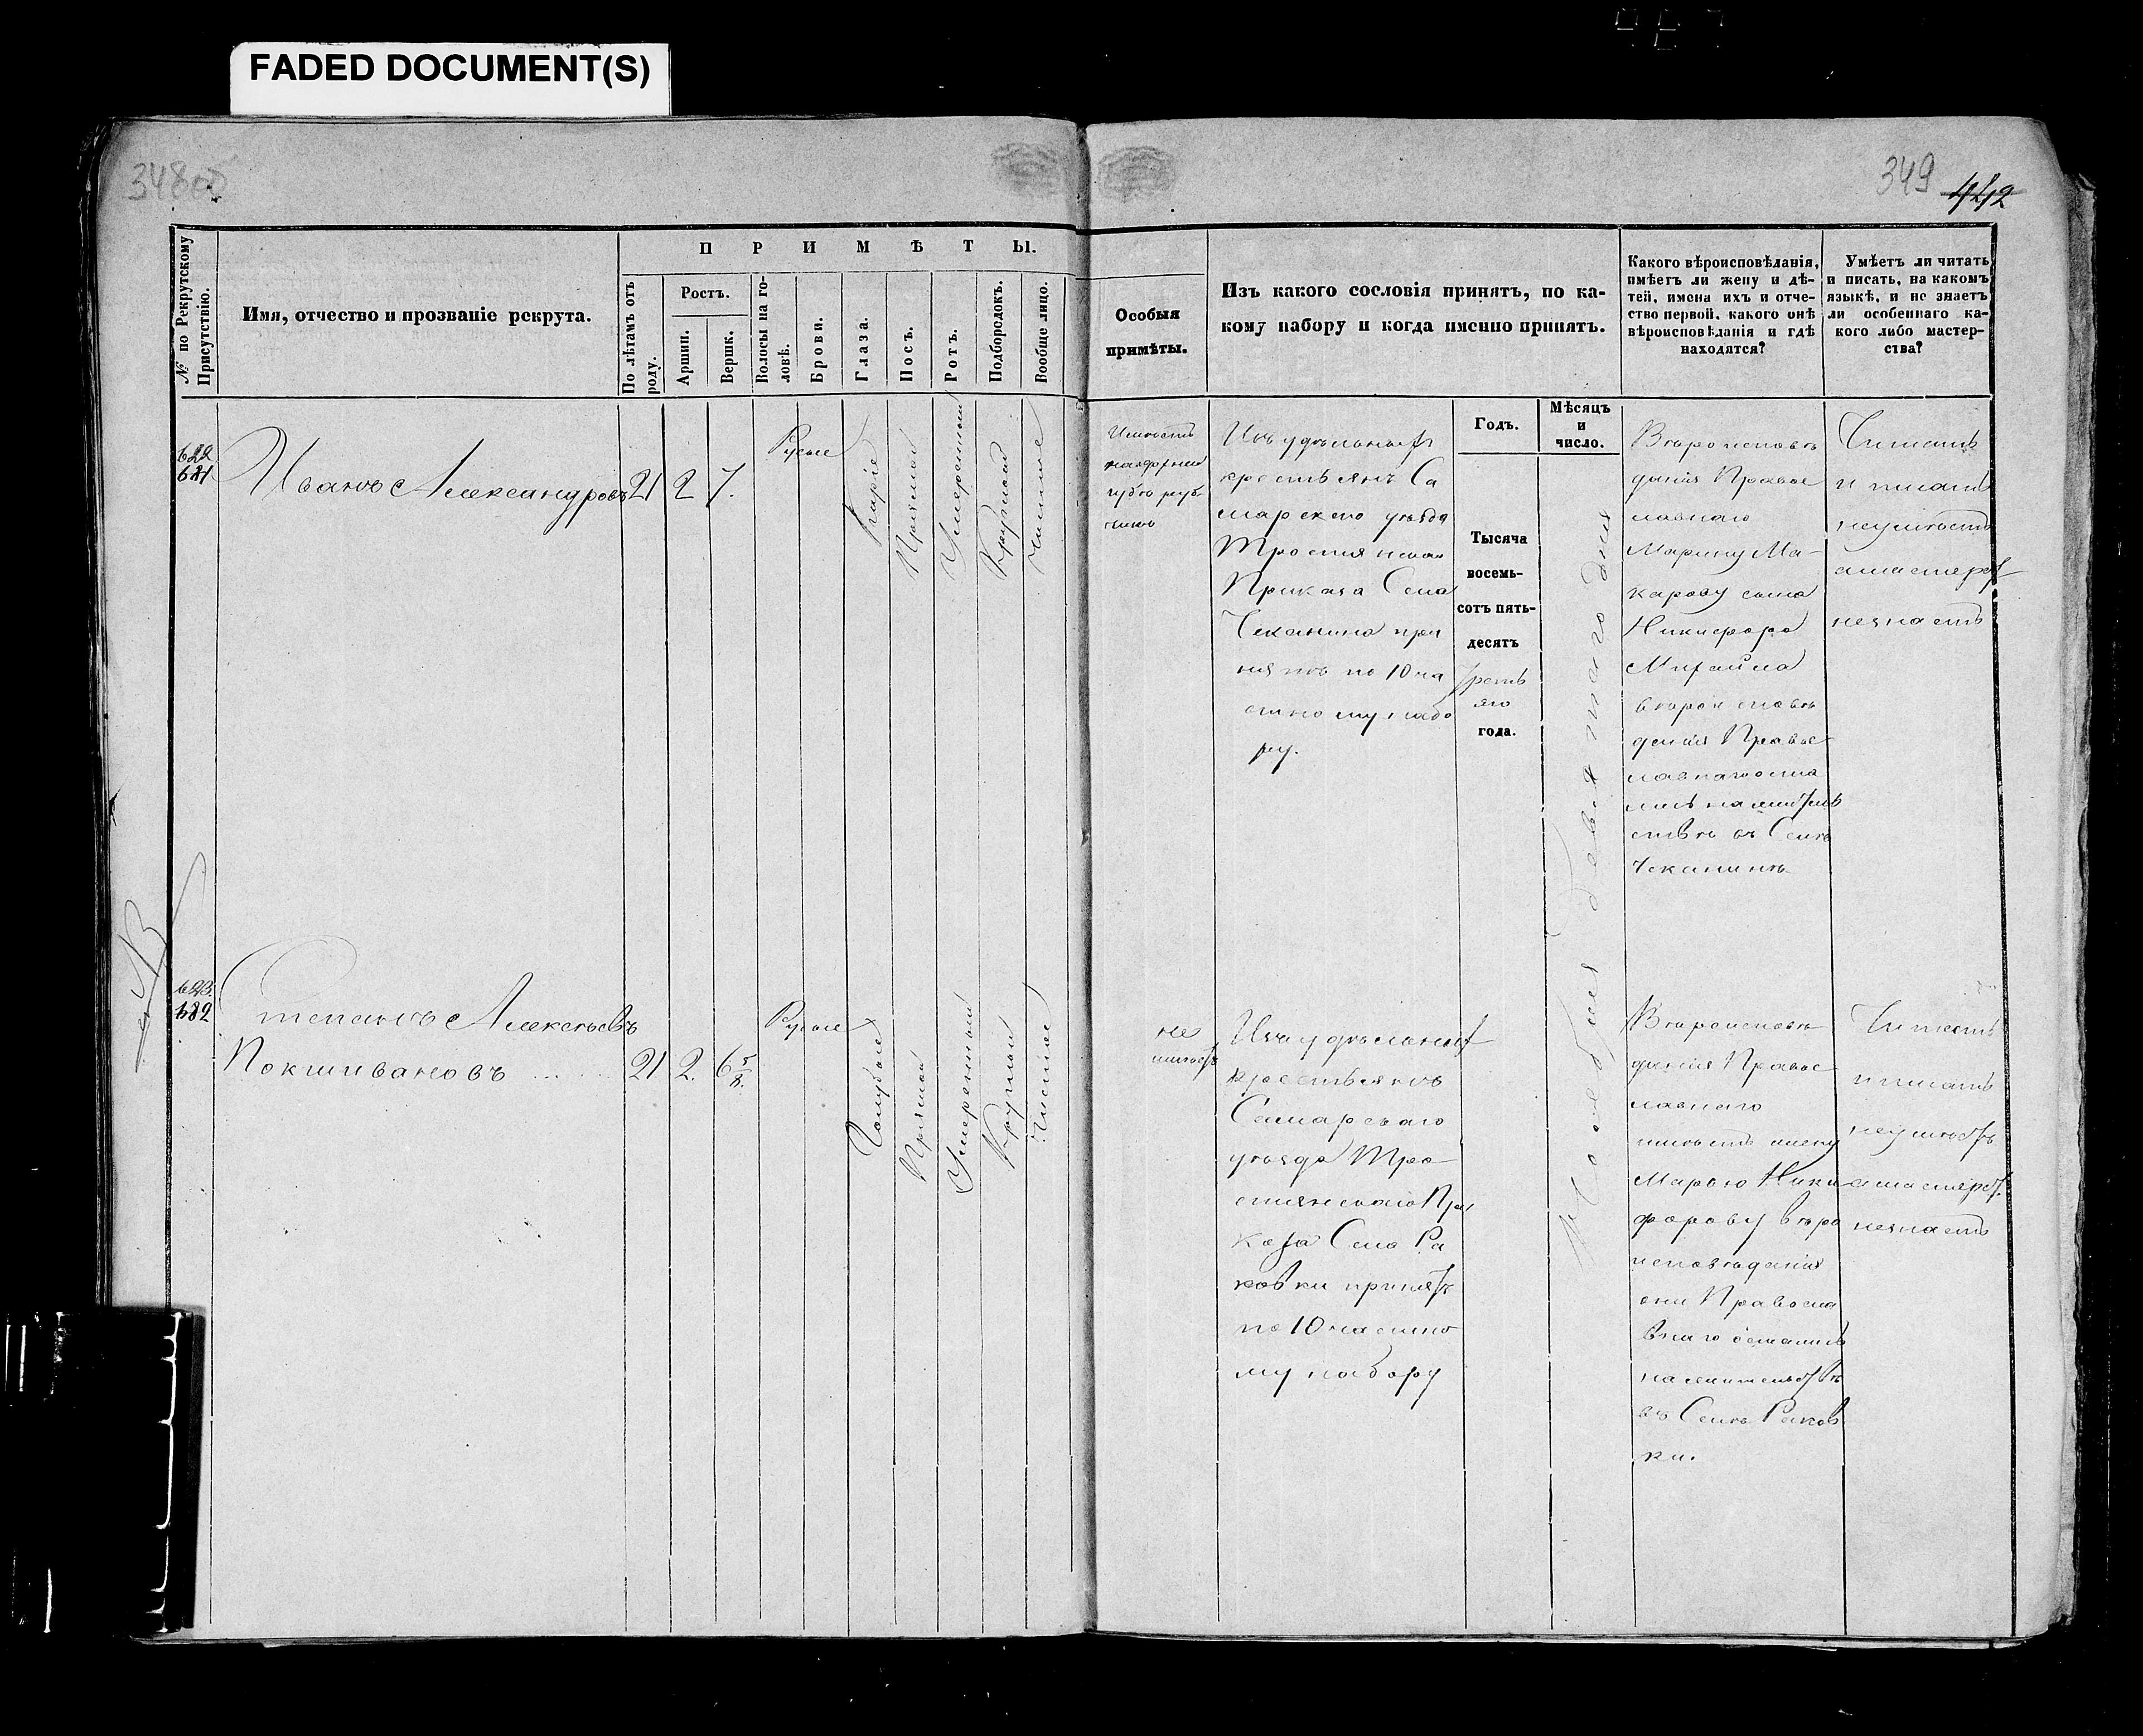 FADED DOCUMENT(S)
348об
349
442
№ по Рекрутскому
Присутствію.
Имя, отчество и прозваніе рекрута.
П Р И М Ѣ Т Ы.
По лѣтамъ отъ
роду.
Ростъ.
Аршин.
Вершк.
Волосы на го-
ловѣ.
Брови.
Глаза.
Носъ.
Ротъ.
Подбородокъ.
Вообще лицо.
Особыя
примѣты.
Изъ какого сословія принятъ, по ка-
кому набору и когда именно принятъ.
Какого вѣроисповѣданія,
имѣетъ ли жену и дѣ-
тей, имена ихъ и отче-
ство первой, какого онѣ
вѣроисповѣданія и гдѣ
находятся?
Умѣетъ ли читать
и писать, на какомъ
языкѣ, и не знаетъ
ли особеннаго ка-
кого либо мастер-
ства?
Годъ.
Мѣсяцъ
и
число.
622
Иванъ Александровъ
21
2
7.
Русые
Каріе
Прямой
Умеренный
Круглой
Чистое
Имѣетъ
губѣ руб
Изъ удѣльныхъ
крестьянъ Са
марскаго уѣзда
Тростянскаго
Приказа Села
Чеканина при
нятъ по 10 ча
стному набо
ру.
Тысяча
восемь-
сотъ пять-
десятъ
Третья
яго
года.
Ноября девятаго дня
Вѣроисповѣ
данія Правос
лавнаго
Марину Ма-
карову сына
Никифора
Михайла
вѣроисповѣ
данія Правос
лавнаго оста
лись на жител
ствѣ въ Селѣ
Чеканинѣ
Читать
и писать
неумѣетъ
а мастерст
незнаетъ
623.
Степанъ Алексѣевъ
Покшивановъ
21
2.
6 5/8.
Русые
Голубые
Прямой
Умеренный
Круглый
Чистое
не
имѣетъ
Изъ удѣльныхъ
крестьянъ
Самарскаго
уѣзда Тро-
стянскаго При
каза Села Ра
ковки принятъ
по 10 частно
му набору
Вѣроисповѣ
данія Правос
лавнаго
имѣетъ жену
Марью Ники
форову вѣро
исповѣданія
они Правосла
внаго остались
на жительствѣ
въ Селѣ Раков
ки.
Читать
и писать
неумѣетъ
а мастерст.
незнаетъ